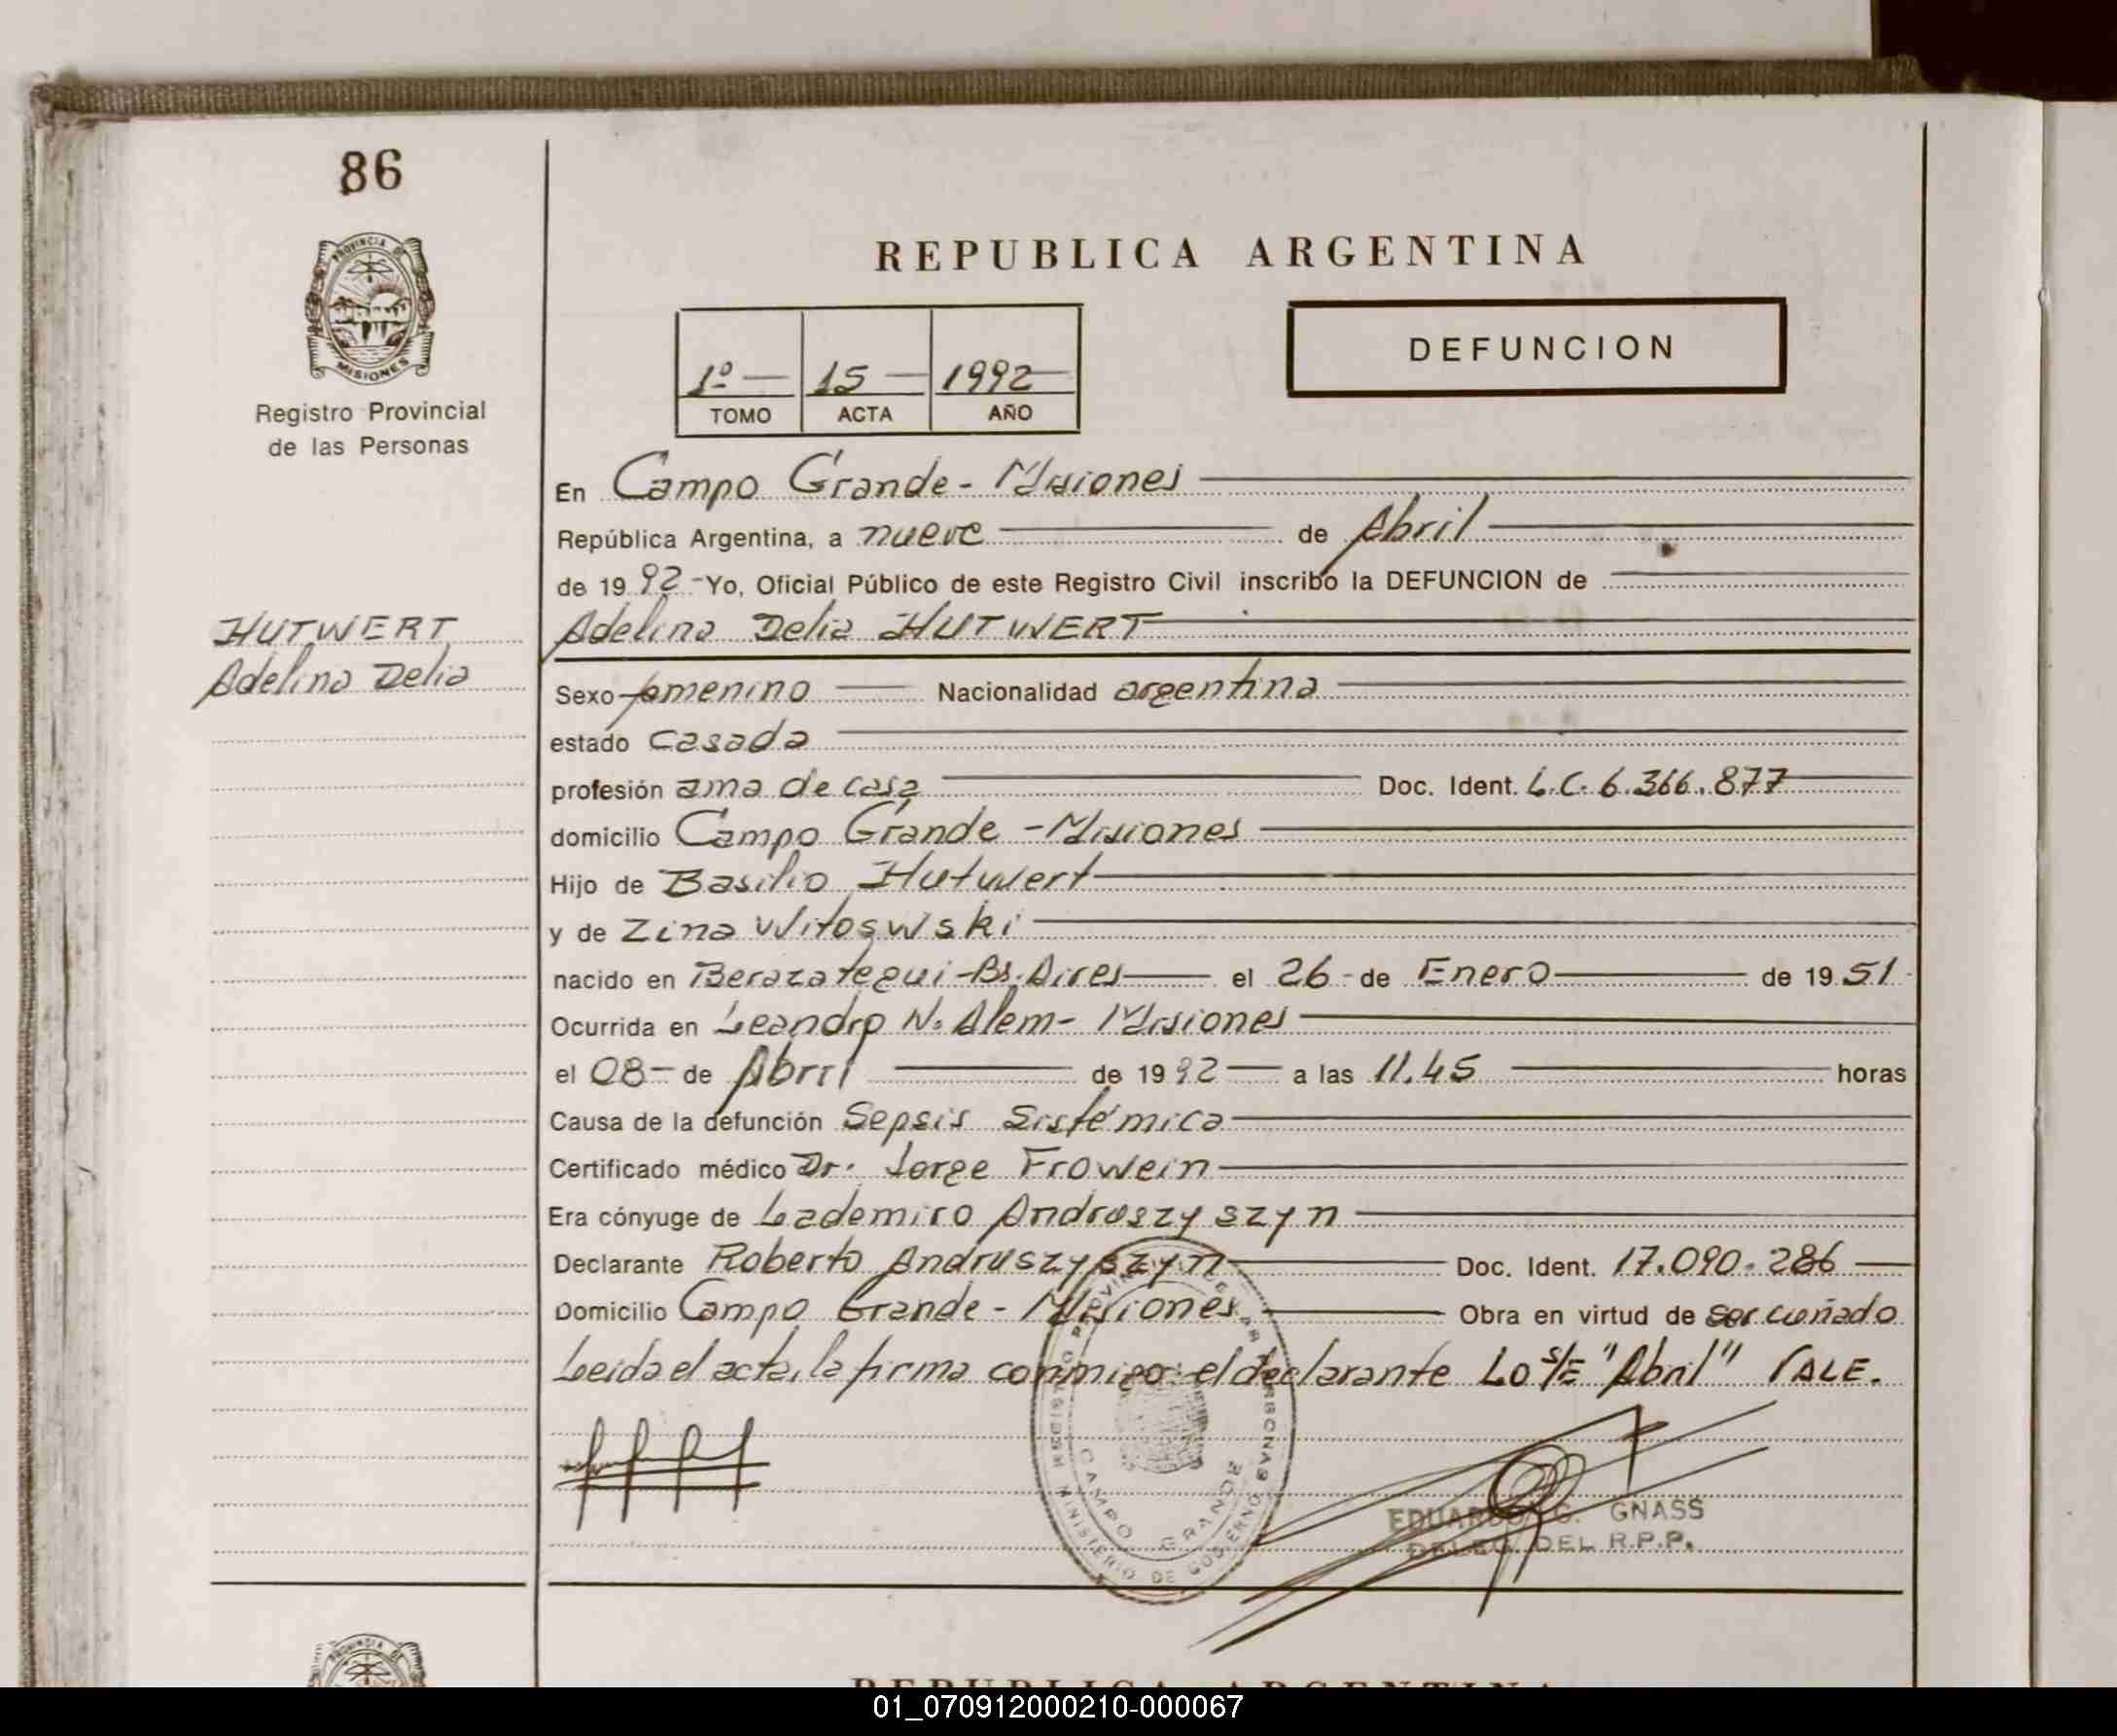 86
PROVINCIA DE
MISIONES
Registro Provincial
de las Personas
HUTWERT
Adelina Delia
REPUBLICA ARGENTINA
1º — 15 — 1992
TOMO ACTA AÑO
DEFUNCION
En Campo Grande - Misiones
República Argentina, a nueve de Abril
de 1992 - Yo, Oficial Público de este Registro Civil inscribo la DEFUNCION de
Adelina Delia HUTWERT
Sexo femenino Nacionalidad argentina
estado casada
profesión ama de casa Doc. Ident. L.C. 6.366.877
domicilio Campo Grande - Misiones
Hijo de Basilio Hutwert
y de Zina Witoswski
nacido en Berazategui - Bs. Aires el 26 - de Enero de 1951
Ocurrida en Leandro N. Alem - Misiones
el 08 - de Abril de 1992 a las 11.45 horas
Causa de la defunción Sepsis Sistémica
Certificado médico Dr. Jorge Frowein
Era cónyuge de Lademiro Andruszyszyn
Declarante Roberto Andruszyszyn Doc. Ident. 17.090.286
Domicilio Campo Grande - Misiones Obra en virtud de ser cuñado
Leída el acta, la firma conmigo: el declarante Lo S/E "Abril" VALE.
CAMPO GRANDE
MINISTERIO DE GOBIERNO
EDUARDO G. GNASS
DELEG. DEL R.P.P.
PROVINCIA DE
REPUBLICA ARGENTINA
01_070912000210-000067